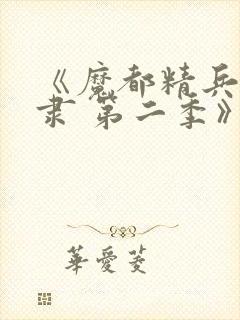 《魔都精兵
隶 第二季》
華愛菱